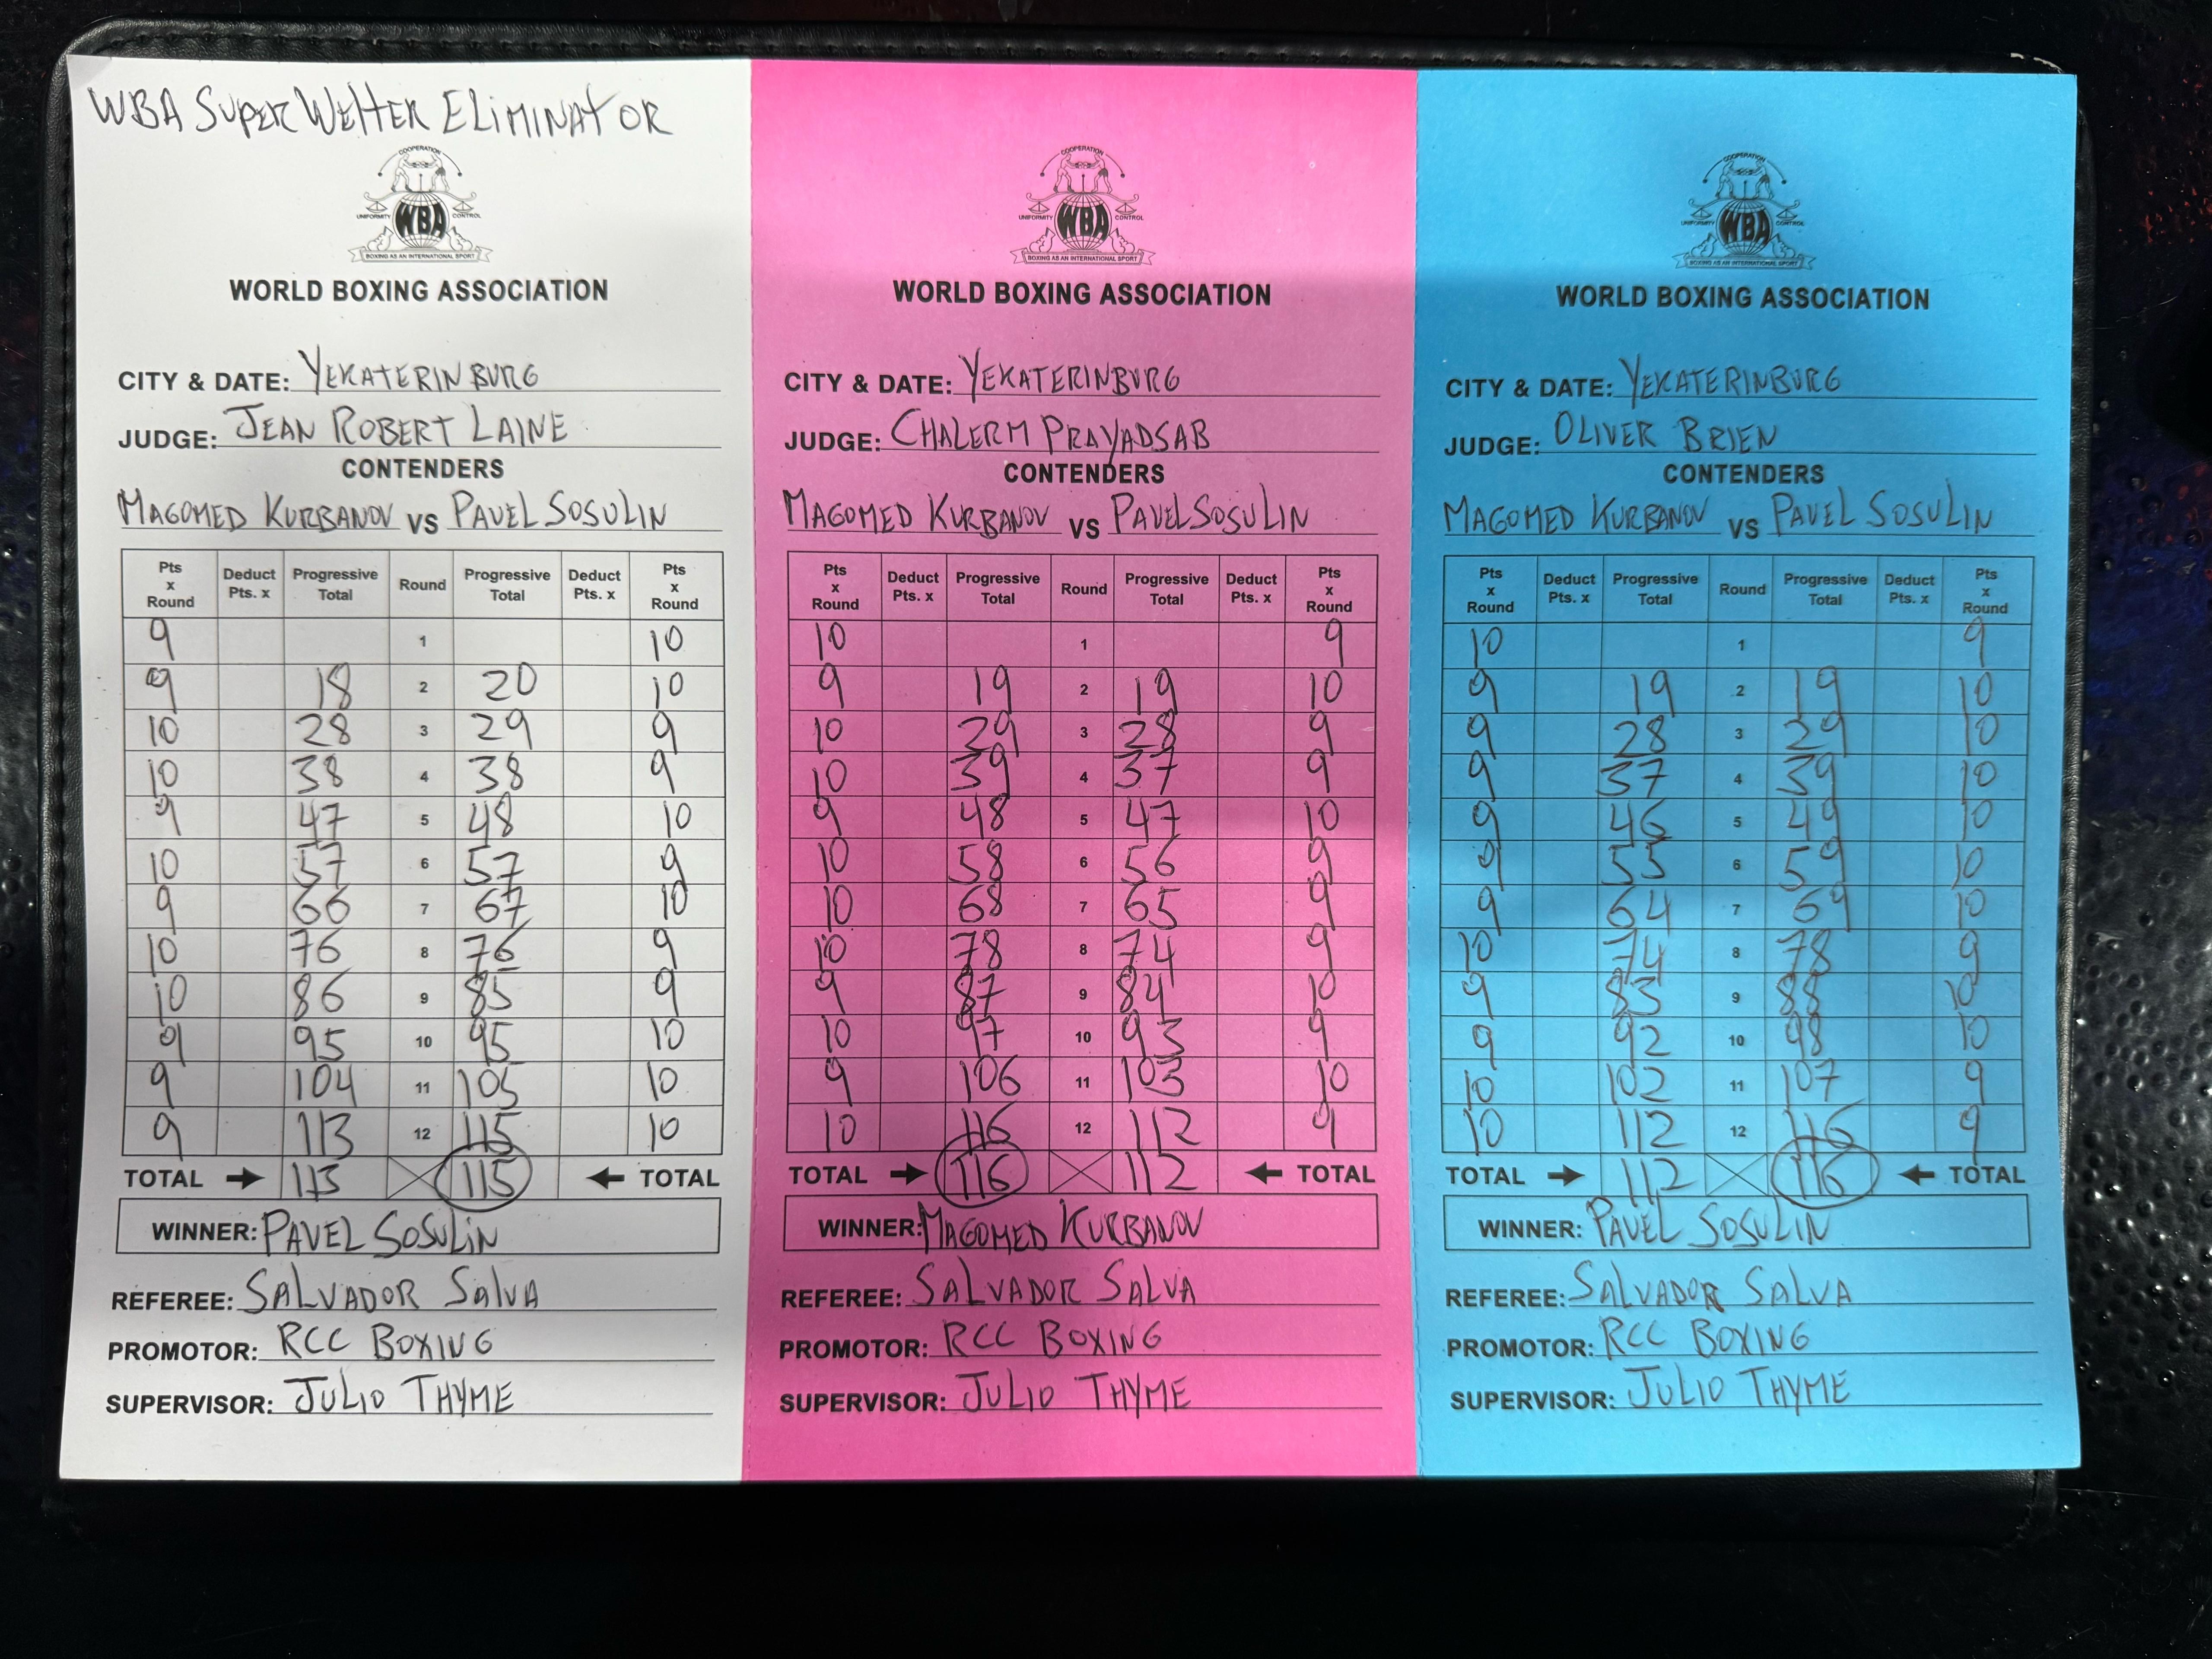 WBA Super Welter Eliminator
COOPERATION
UNIFORMITY WBA CONTROL
BOXING AS AN INTERNATIONAL SPORT
WORLD BOXING ASSOCIATION
CITY & DATE: YEKATERINBURG
JUDGE: JEAN ROBERT LAINE
CONTENDERS
MAGOMED KURBANOV VS PAVEL SOSULIN
Pts x Round Deduct Pts. x Progressive Total Round Progressive Total Deduct Pts. x Pts x Round
9 1 10
9 18 2 20 10
10 28 3 29 9
10 38 4 38 9
9 47 5 48 10
10 57 6 57 9
9 66 7 67 10
10 76 8 76 9
10 86 9 85 9
9 95 10 95 10
9 104 11 105 10
9 113 12 115 10
TOTAL 113 115 TOTAL
WINNER: PAVEL SOSULIN
REFEREE: SALVADOR SALVA
PROMOTOR: RCC BOXING
SUPERVISOR: JULIO THYME
COOPERATION
UNIFORMITY WBA CONTROL
BOXING AS AN INTERNATIONAL SPORT
WORLD BOXING ASSOCIATION
CITY & DATE: YEKATERINBURG
JUDGE: CHALERM PRAYADSAB
CONTENDERS
MAGOMED KURBANOV VS PAVEL SOSULIN
Pts x Round Deduct Pts. x Progressive Total Round Progressive Total Deduct Pts. x Pts x Round
10 1 9
9 19 2 19 10
10 29 3 28 9
10 39 4 37 9
9 48 5 47 10
10 58 6 56 9
10 68 7 65 9
10 78 8 74 9
9 87 9 84 10
10 97 10 93 9
9 106 11 103 10
10 116 12 112 9
TOTAL 116 112 TOTAL
WINNER: MAGOMED KURBANOV
REFEREE: SALVADOR SALVA
PROMOTOR: RCC BOXING
SUPERVISOR: JULIO THYME
COOPERATION
UNIFORMITY WBA CONTROL
BOXING AS AN INTERNATIONAL SPORT
WORLD BOXING ASSOCIATION
CITY & DATE: YEKATERINBURG
JUDGE: OLIVER BRIEN
CONTENDERS
MAGOMED KURBANOV VS PAVEL SOSULIN
Pts x Round Deduct Pts. x Progressive Total Round Progressive Total Deduct Pts. x Pts x Round
10 1 9
9 19 2 19 10
9 28 3 29 10
9 37 4 39 10
9 46 5 49 10
9 55 6 59 10
9 64 7 69 10
10 74 8 78 9
9 83 9 88 10
9 92 10 98 10
10 102 11 107 9
10 112 12 116 9
TOTAL 112 116 TOTAL
WINNER: PAVEL SOSULIN
REFEREE: SALVADOR SALVA
PROMOTOR: RCC BOXING
SUPERVISOR: JULIO THYME